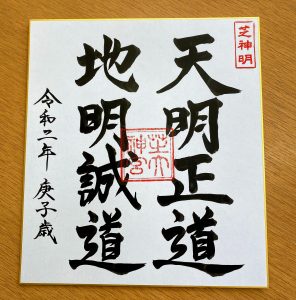 芝神明
天明正道
地明誠道
令和二年 庚子歳